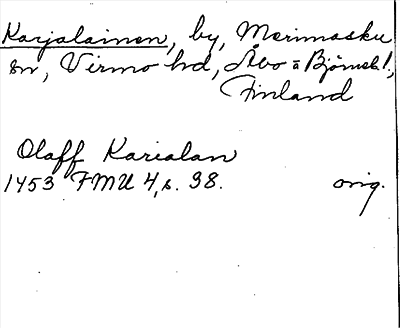 Karjalainen, by, Merimasku
sn, Virmo hd, Åbo o Björneb. l.,
Finland
Olaff Karialan
1453 FMU 4, s. 38. orig.